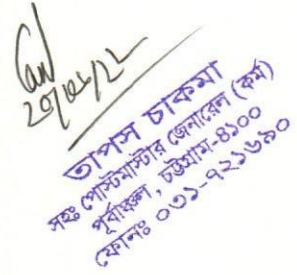 ২০/০৬/২২
তাপস চাকমা
সহঃ পোস্টমাস্টার জেনারেল (কর্ম)
পূর্বাঞ্চল, চট্টগ্রাম-৪১০০
ফোনঃ ০৩১-৭২১৬৯০